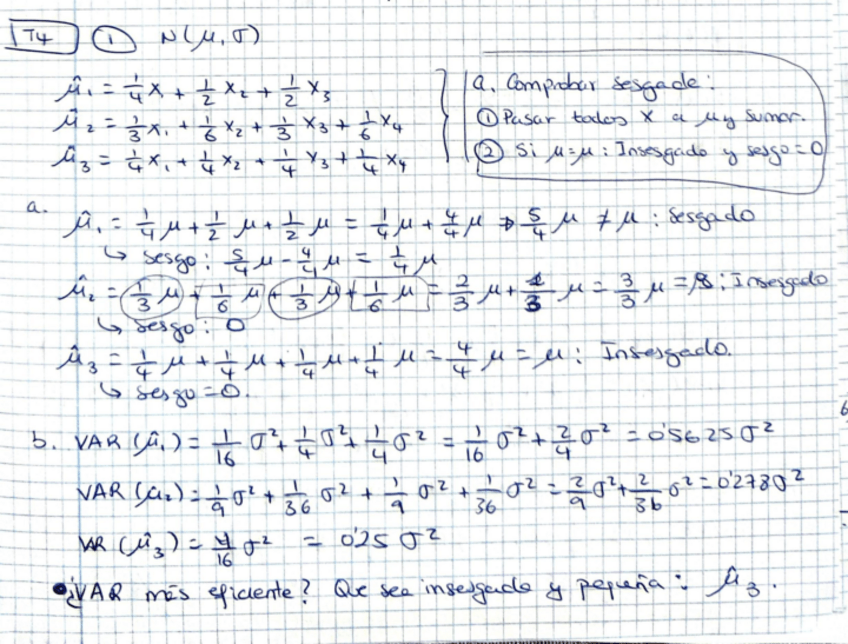 T4 ① N(μ, σ)
μ̂₁ = 1/4 x₁ + 1/2 x₂ + 1/2 x₃
μ̂₂ = 1/3 x₁ + 1/6 x₂ + 1/3 x₃ + 1/6 x₄
μ̂₃ = 1/4 x₁ + 1/4 x₂ + 1/4 x₃ + 1/4 x₄
a. Comprobar sesgade:
① Pasar todos X a μ y sumar.
② Si μ=μ: Insesgado y sesgo=0
a.
μ̂₁ = 1/4 μ + 1/2 μ + 1/2 μ = 1/4 μ + 4/4 μ ⇒ 5/4 μ ≠ μ : Sesgado
↳ sesgo: 5/4 μ - 4/4 μ = 1/4 μ
μ̂₂ = 1/3 μ + 1/6 μ + 1/3 μ + 1/6 μ = 2/3 μ + 1/3 μ = 3/3 μ = : Insesgado
↳ sesgo: 0
μ̂₃ = 1/4 μ + 1/4 μ + 1/4 μ + 1/4 μ = 4/4 μ = μ : Insesgado.
↳ sesgo = 0.
b. VAR (μ̂₁) = 1/16 σ² + 1/4 σ² + 1/4 σ² = 1/16 σ² + 2/4 σ² = 0'5625 σ²
VAR (μ̂₂) = 1/9 σ² + 1/36 σ² + 1/9 σ² + 1/36 σ² = 2/9 σ² + 2/36 σ² = 0'278 σ²
VAR (μ̂₃) = 4/16 σ² = 0'25 σ²
• ¿VAR más eficiente? Que sea insesgado y pequeña : μ̂₃.